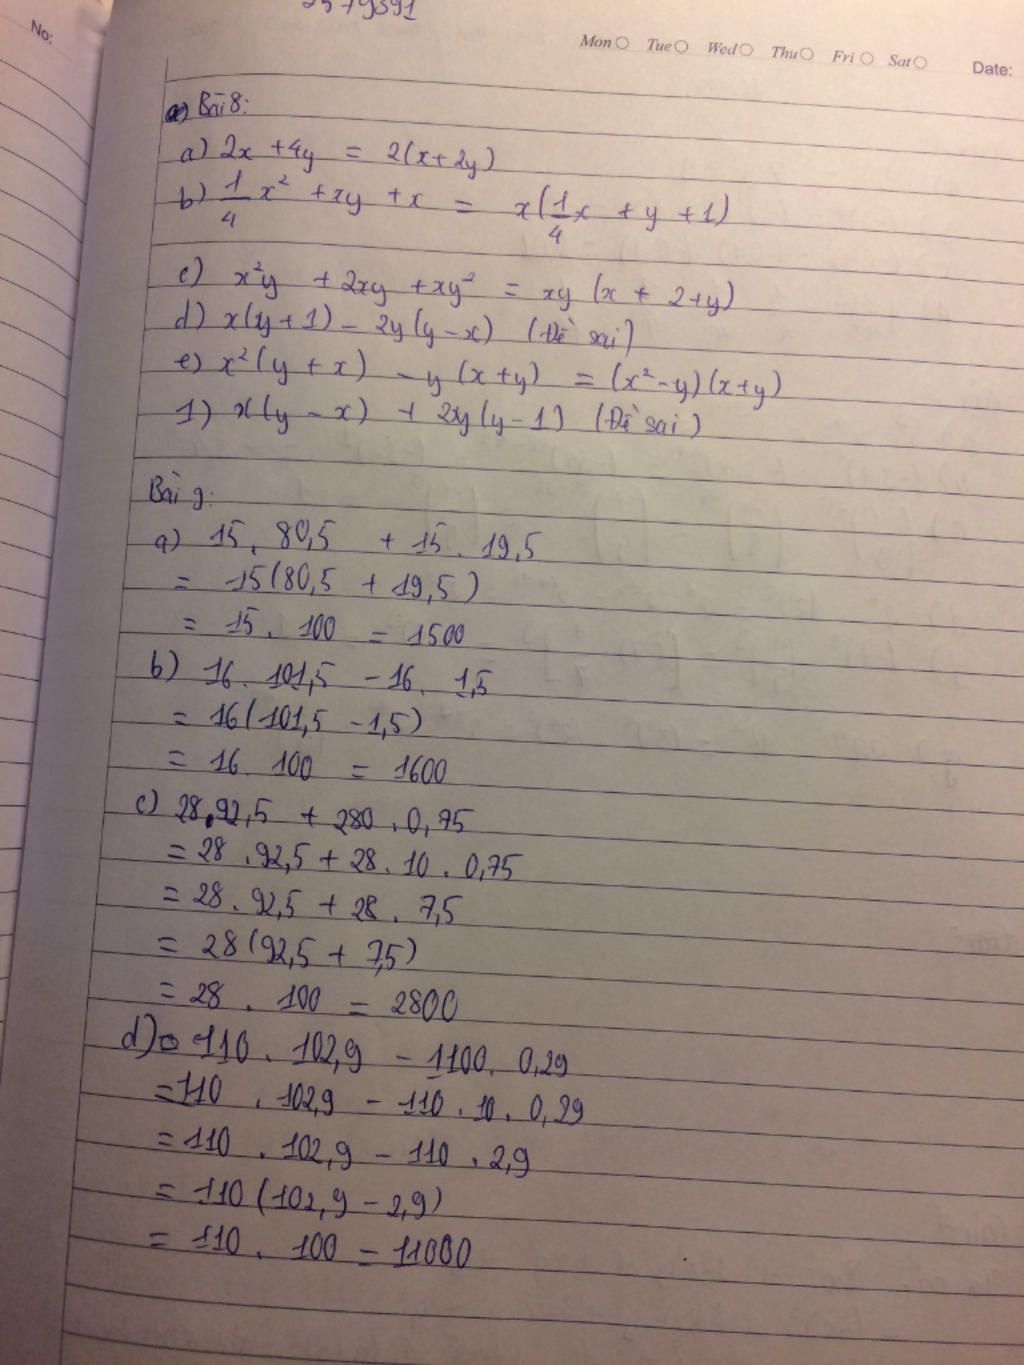 No:
Mon Tue Wed Thu Fri Sat
Date:
Bài 8:
a) 2x + 4y = 2(x + 2y)
b) 1/4 x² + xy + x = x(1/4 x + y + 1)
c) x²y + 2xy + xy² = xy (x + 2 + y)
d) x(y + 1) - 2y(y - x) (Đề sai)
e) x²(y + x) - y(x + y) = (x² - y)(x + y)
1) x(y - x) + 2y(y - 1) (Đề sai)
Bài 9:
a) 15 . 80,5 + 15 . 19,5
= 15(80,5 + 19,5)
= 15 . 100 = 1500
b) 16 . 101,5 - 16 . 1,5
= 16(101,5 - 1,5)
= 16 . 100 = 1600
c) 28 . 92,5 + 280 . 0,75
= 28 . 92,5 + 28 . 10 . 0,75
= 28 . 92,5 + 28 . 7,5
= 28(92,5 + 7,5)
= 28 . 100 = 2800
d) 110 . 102,9 - 1100 . 0,29
= 110 . 102,9 - 110 . 10 . 0,29
= 110 . 102,9 - 110 . 2,9
= 110(102,9 - 2,9)
= 110 . 100 = 11000